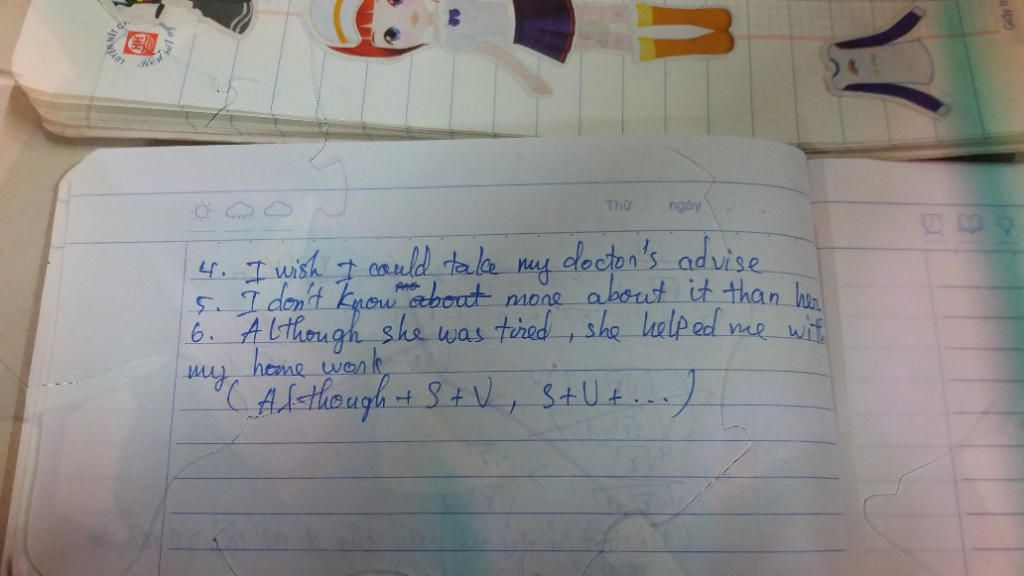 Thứ ngày
4. I wish I could take my doctor's advise
5. I don't know about more about it than her
6. Although she was tired, she helped me with
my home work
(Although + S + V, S + V + ...)